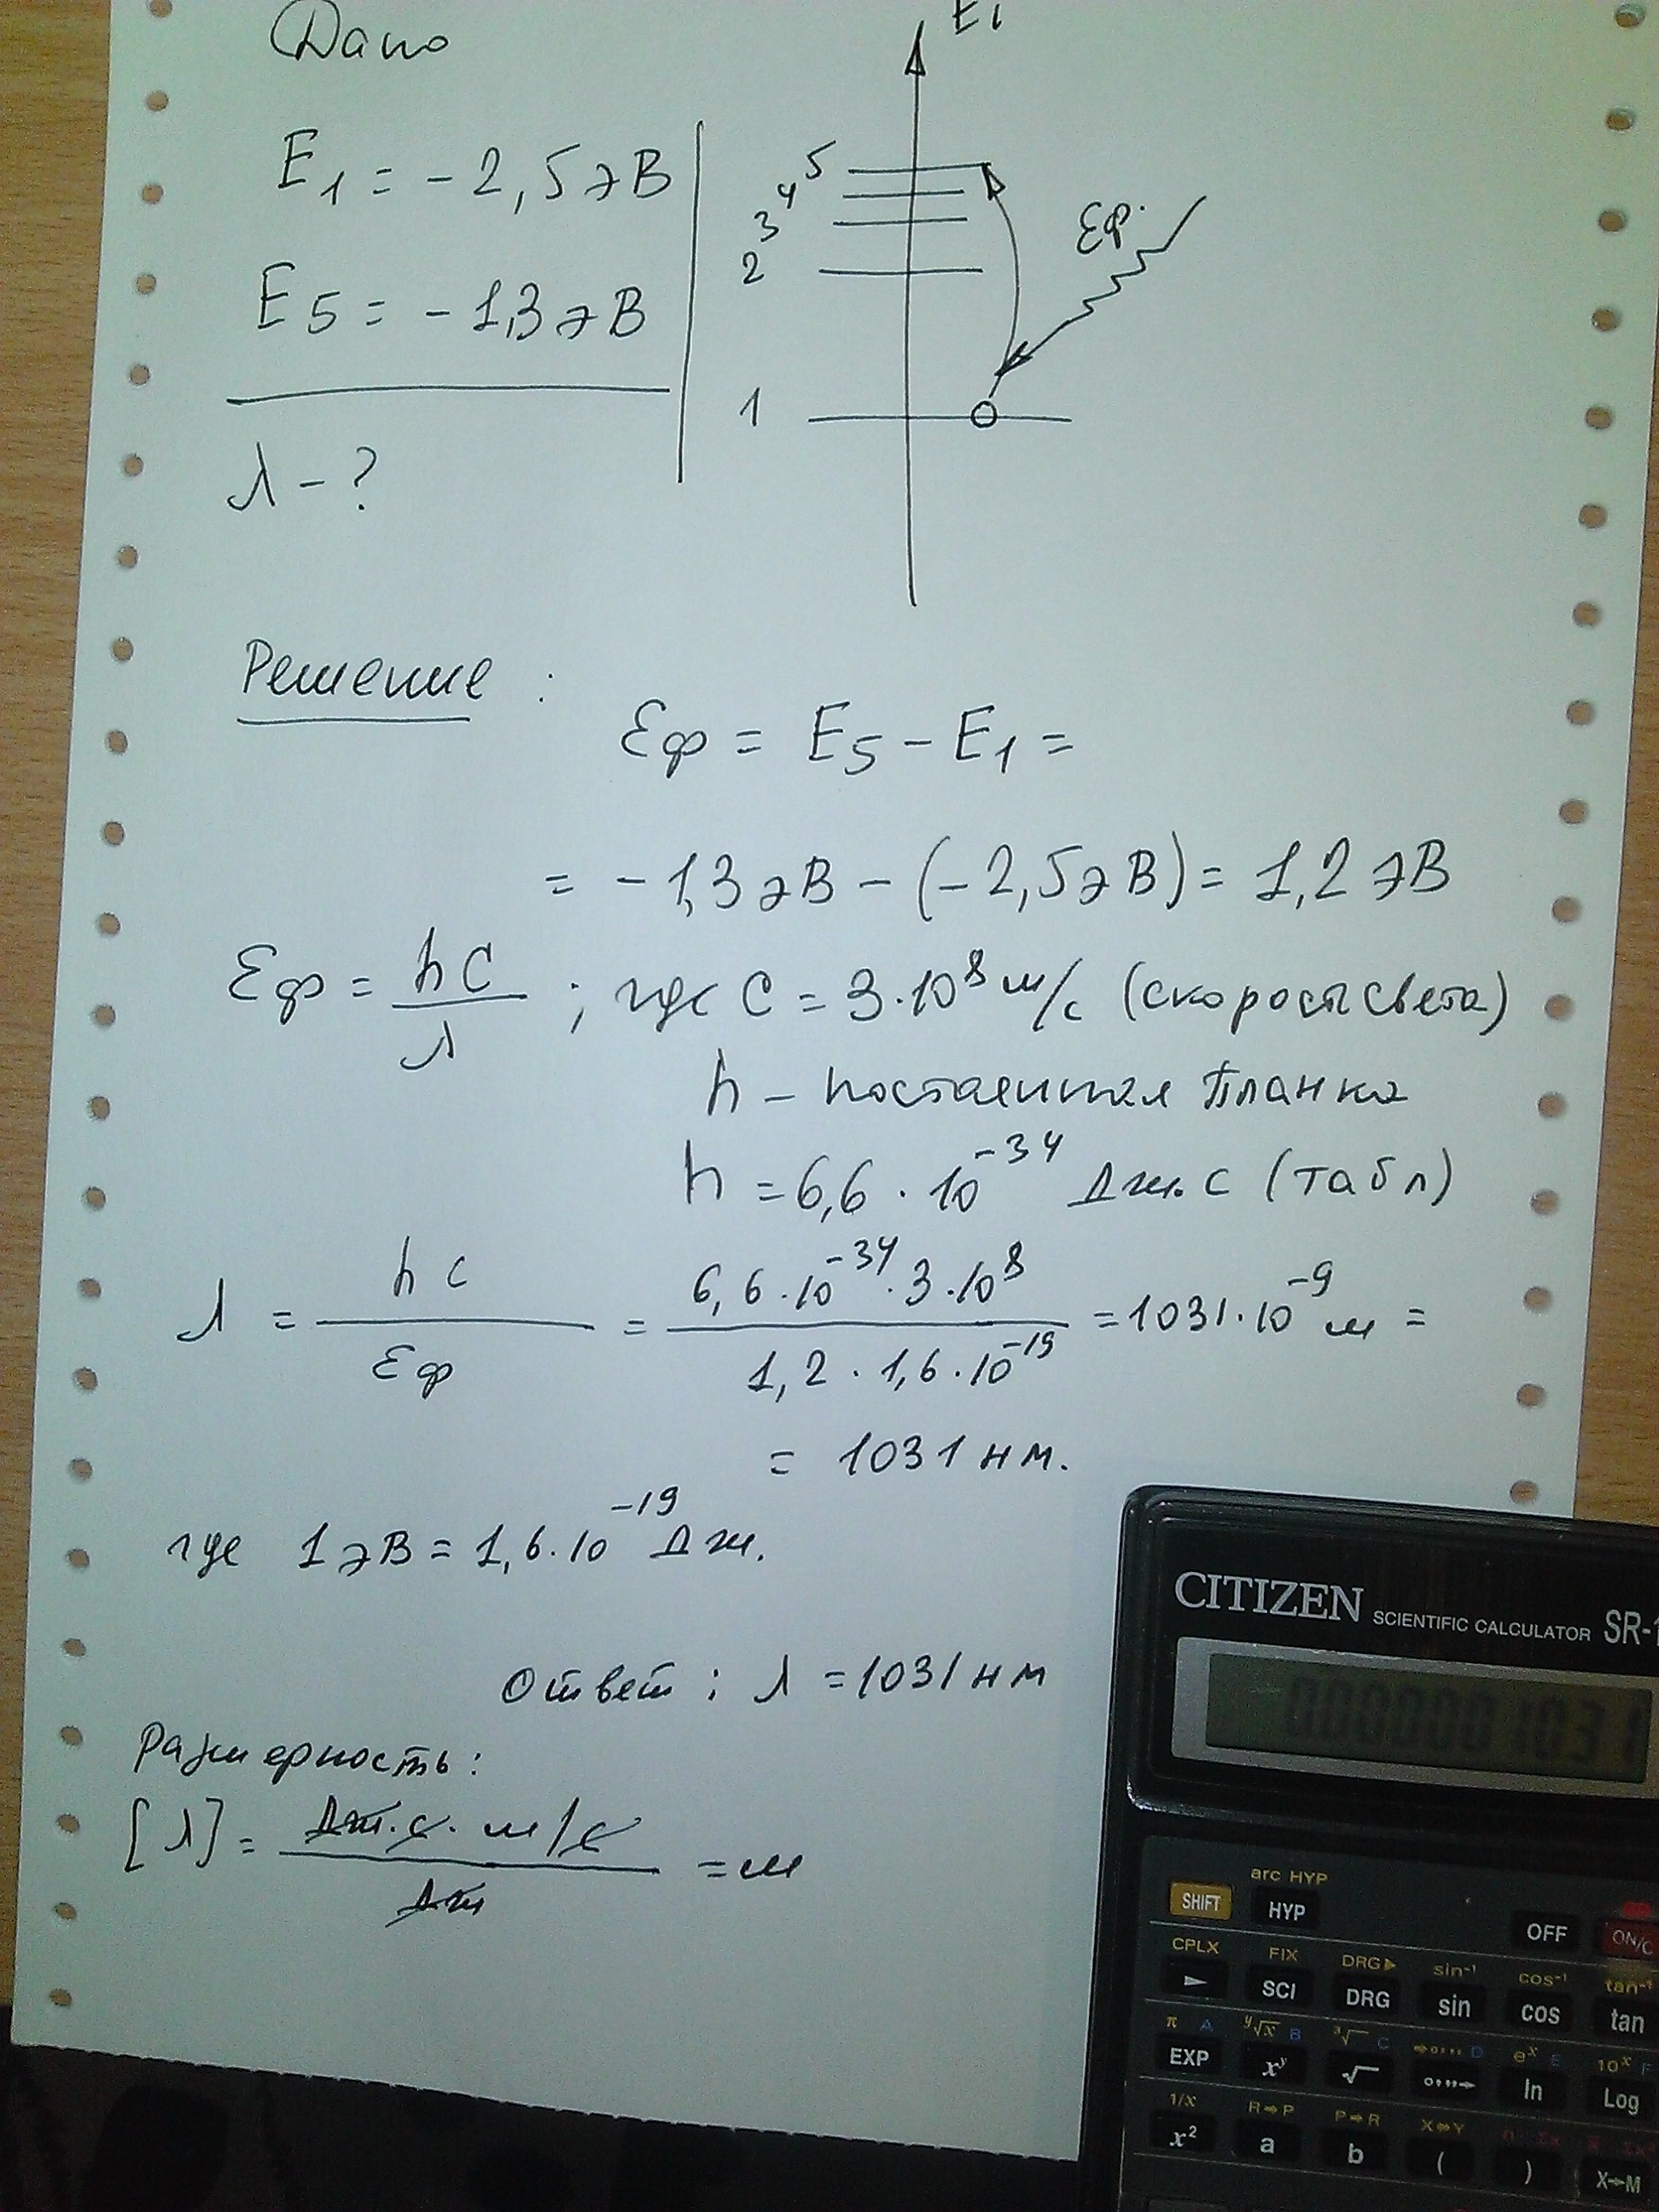 Дано
E1
E1 = -2,5 эВ
E5 = -1,3 эВ
λ - ?
5
4
3
2
1
Eф.
Решение :
Eф = E5 - E1 =
= -1,3 эВ - (-2,5 эВ) = 1,2 эВ
Eф = hc/λ ; где C = 3·10^8 м/с (скорость света)
h - постоянная Планка
h = 6,6 · 10^-34 Дж.с (табл)
λ = hc/Eф = 6,6·10^-34·3·10^8/1,2·1,6·10^-19 = 1031·10^-9 м =
= 1031 нм.
где 1 эВ = 1,6·10^-19 Дж.
Ответ : λ = 1031 нм
Размерность:
[λ] = Дж·с·м/с/Дж = м
CITIZEN SCIENTIFIC CALCULATOR SR-1
0.000001031
arc HYP
SHIFT HYP OFF ON/C
CPLX FIX DRG► sin⁻¹ cos⁻¹ tan⁻¹
► SCI DRG sin cos tan
π A ʸ√x B ³√ C D eˣ E 10ˣ F
EXP xʸ √ o,,,→ ln Log
1/x R→P P→R X↔Y
x² a b ( ) X→M